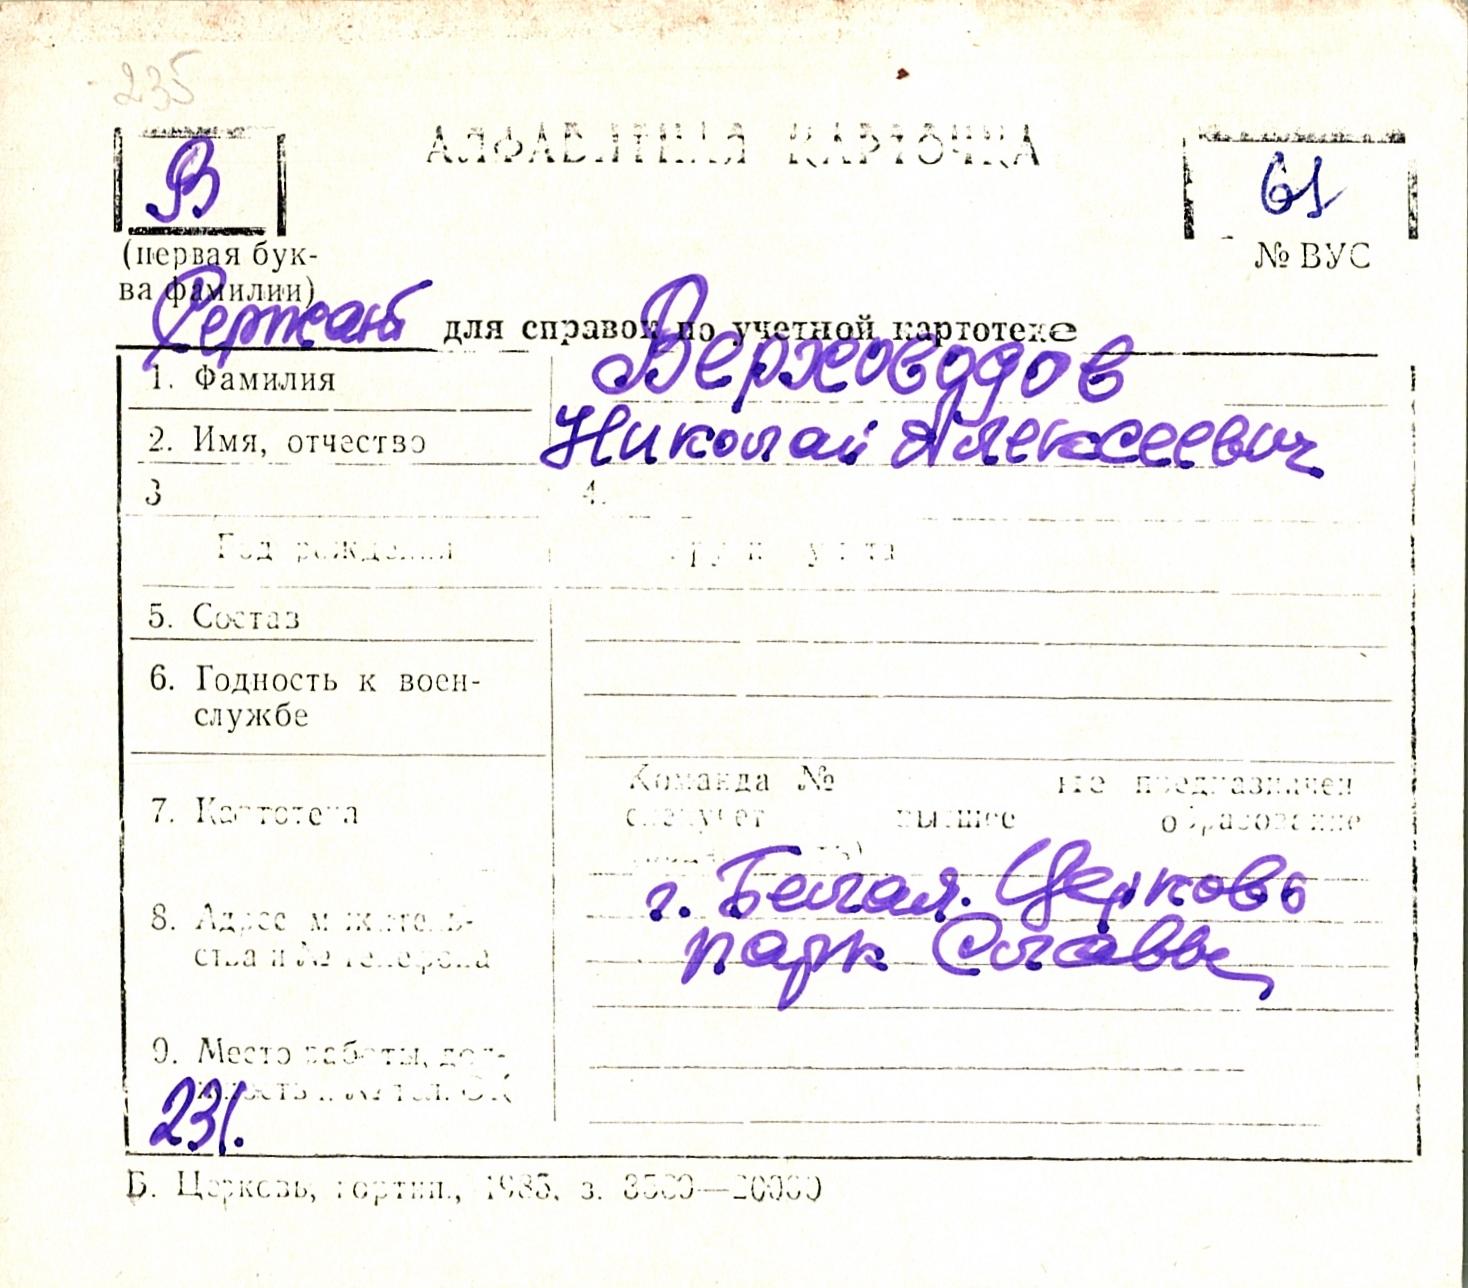 235
АЛФАВИТНАЯ КАРТОЧКА
В
61
(первая бук-
ва фамилии)
№ ВУС
Сержант для справок по учетной картотеке
1. Фамилия Верховодов
2. Имя, отчество Николай Алексеевич
3 4.
Год рождения группа учета
5. Состав
6. Годность к воен-
службе
Команда № не предназначен
7. Картотека
спецучет высшее образование
8. Адрес м житель-
ства и № телефона
г. Белая. Церковь
парк Славы
9. Место работы, дол-
жность и № тел. ОК
231.
Б. Церковь, гортип., 1985, з. 3500—20000